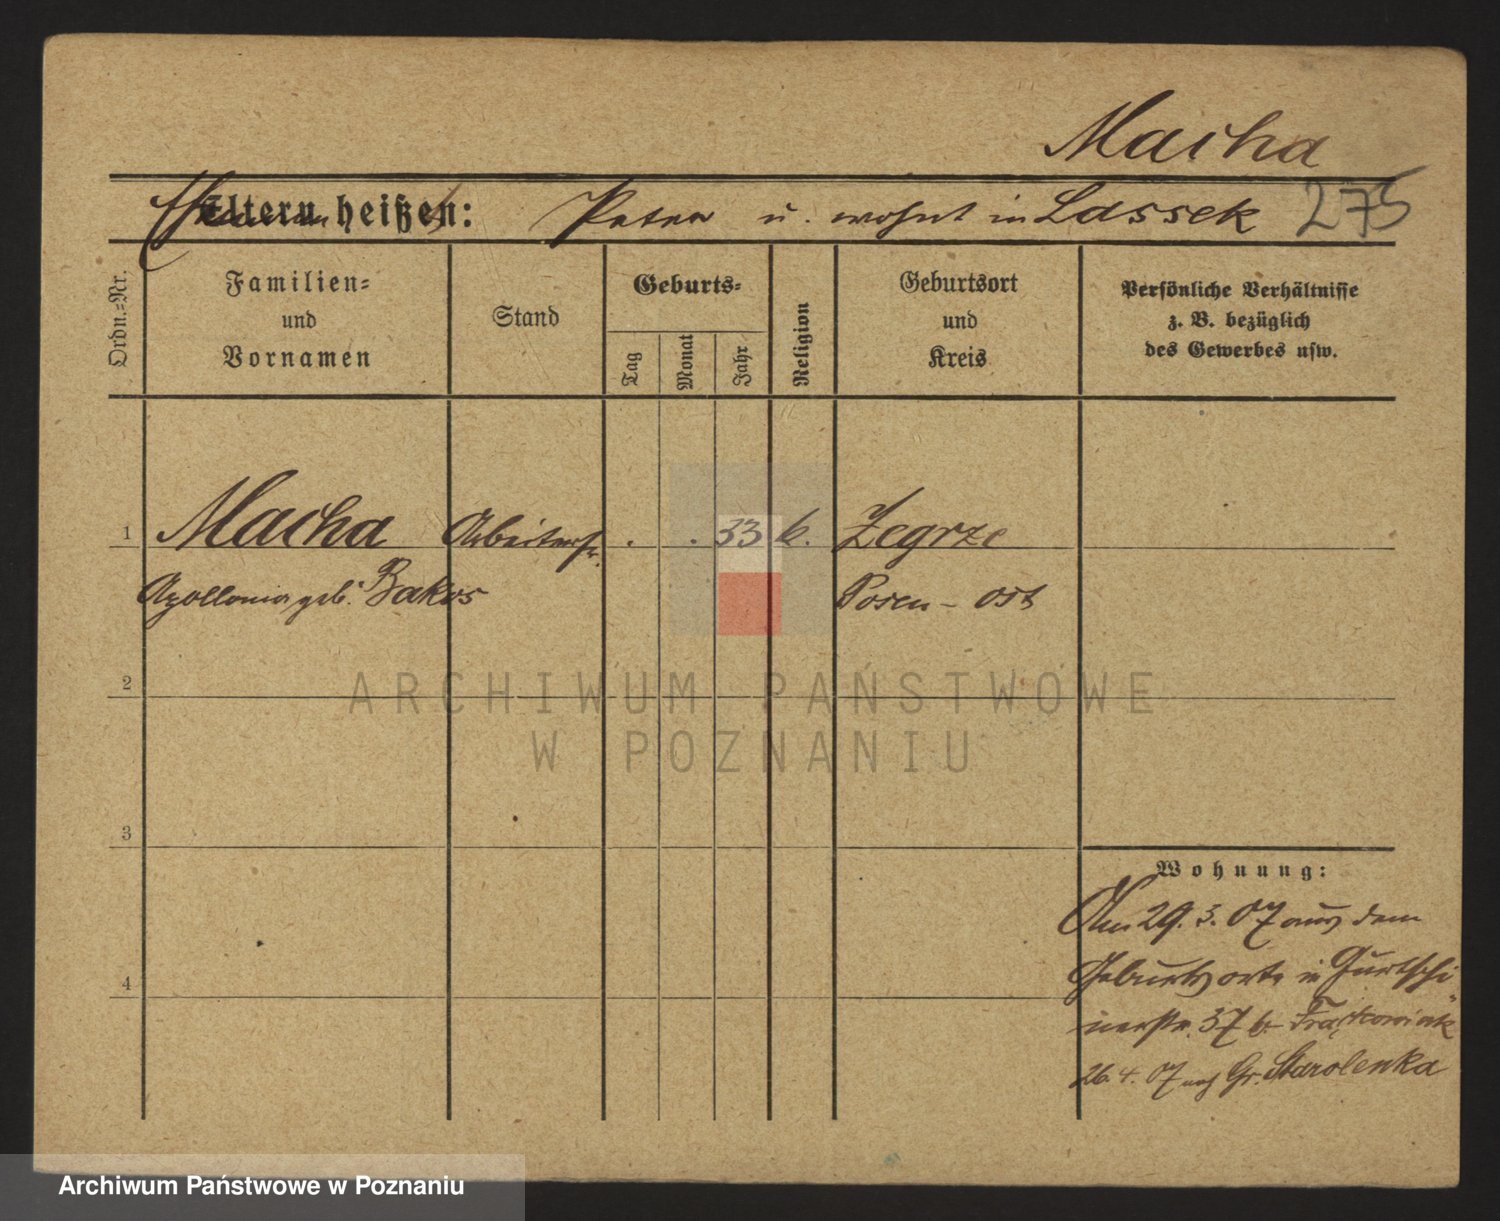 Macha
Eltern heißen: Peter u. wohnt in Lassek 275
Ordn.=Nr.
Familien=
und
Vornamen
Stand
Geburts=
Tag
Monat
Jahr
Religion
Geburtsort
und
Kreis
Persönliche Verhältnisse
z. B. bezüglich
des Gewerbes usw.
1 Macha Arbeiterfr. . . 33 k. Zegrze
Apollonia geb. Bakos Posen - Ost
2
3
4
Wohnung:
Am 29. 3. 07 aus dem
Geburtsorte in Gurtschi
nerstr. 37 b. Frąckowiak
26. 4. 07 nach Gr. Starolenka
ARCHIWUM PAŃSTWOWE
W POZNANIU
Archiwum Państwowe w Poznaniu